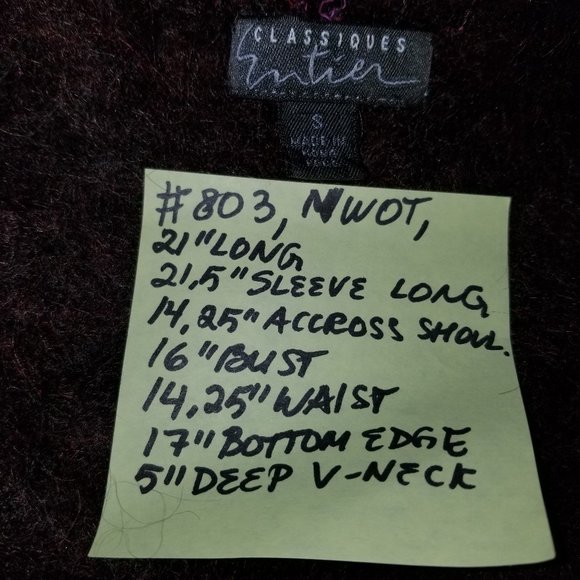 CLASSIQUES
Entier
S
MADE IN
#803, NWOT,
21" LONG
21,5" SLEEVE LONG
14,25" ACCROSS SHOUL.
16" BUST
14,25" WAIST
17" BOTTOM EDGE
5" DEEP V-NECK